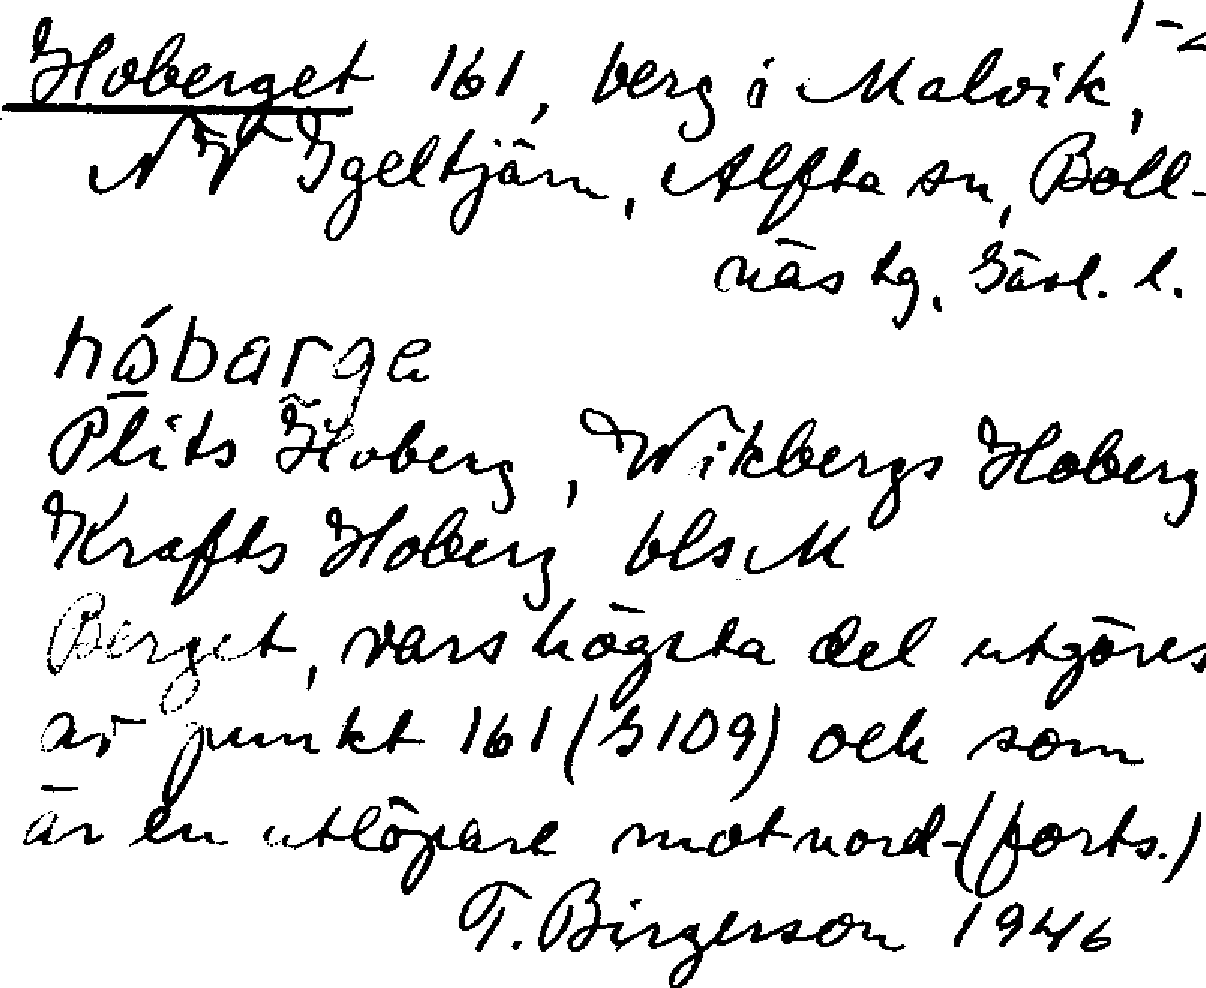 1-2
Hoberget 161, berg i Malvik,
NV Igeltjärn, Alfta sn, Boll-
näs tg. Gävl. l.
hó̱barge
Plits Hoberg, Wikbergs Hoberg
Krafts Hoberg bls M
Berget, vars högsta del utgöres
av punkt 161 (G109) och som
är en utlöpare mot nord-(forts.)
T. Birgerson 1946